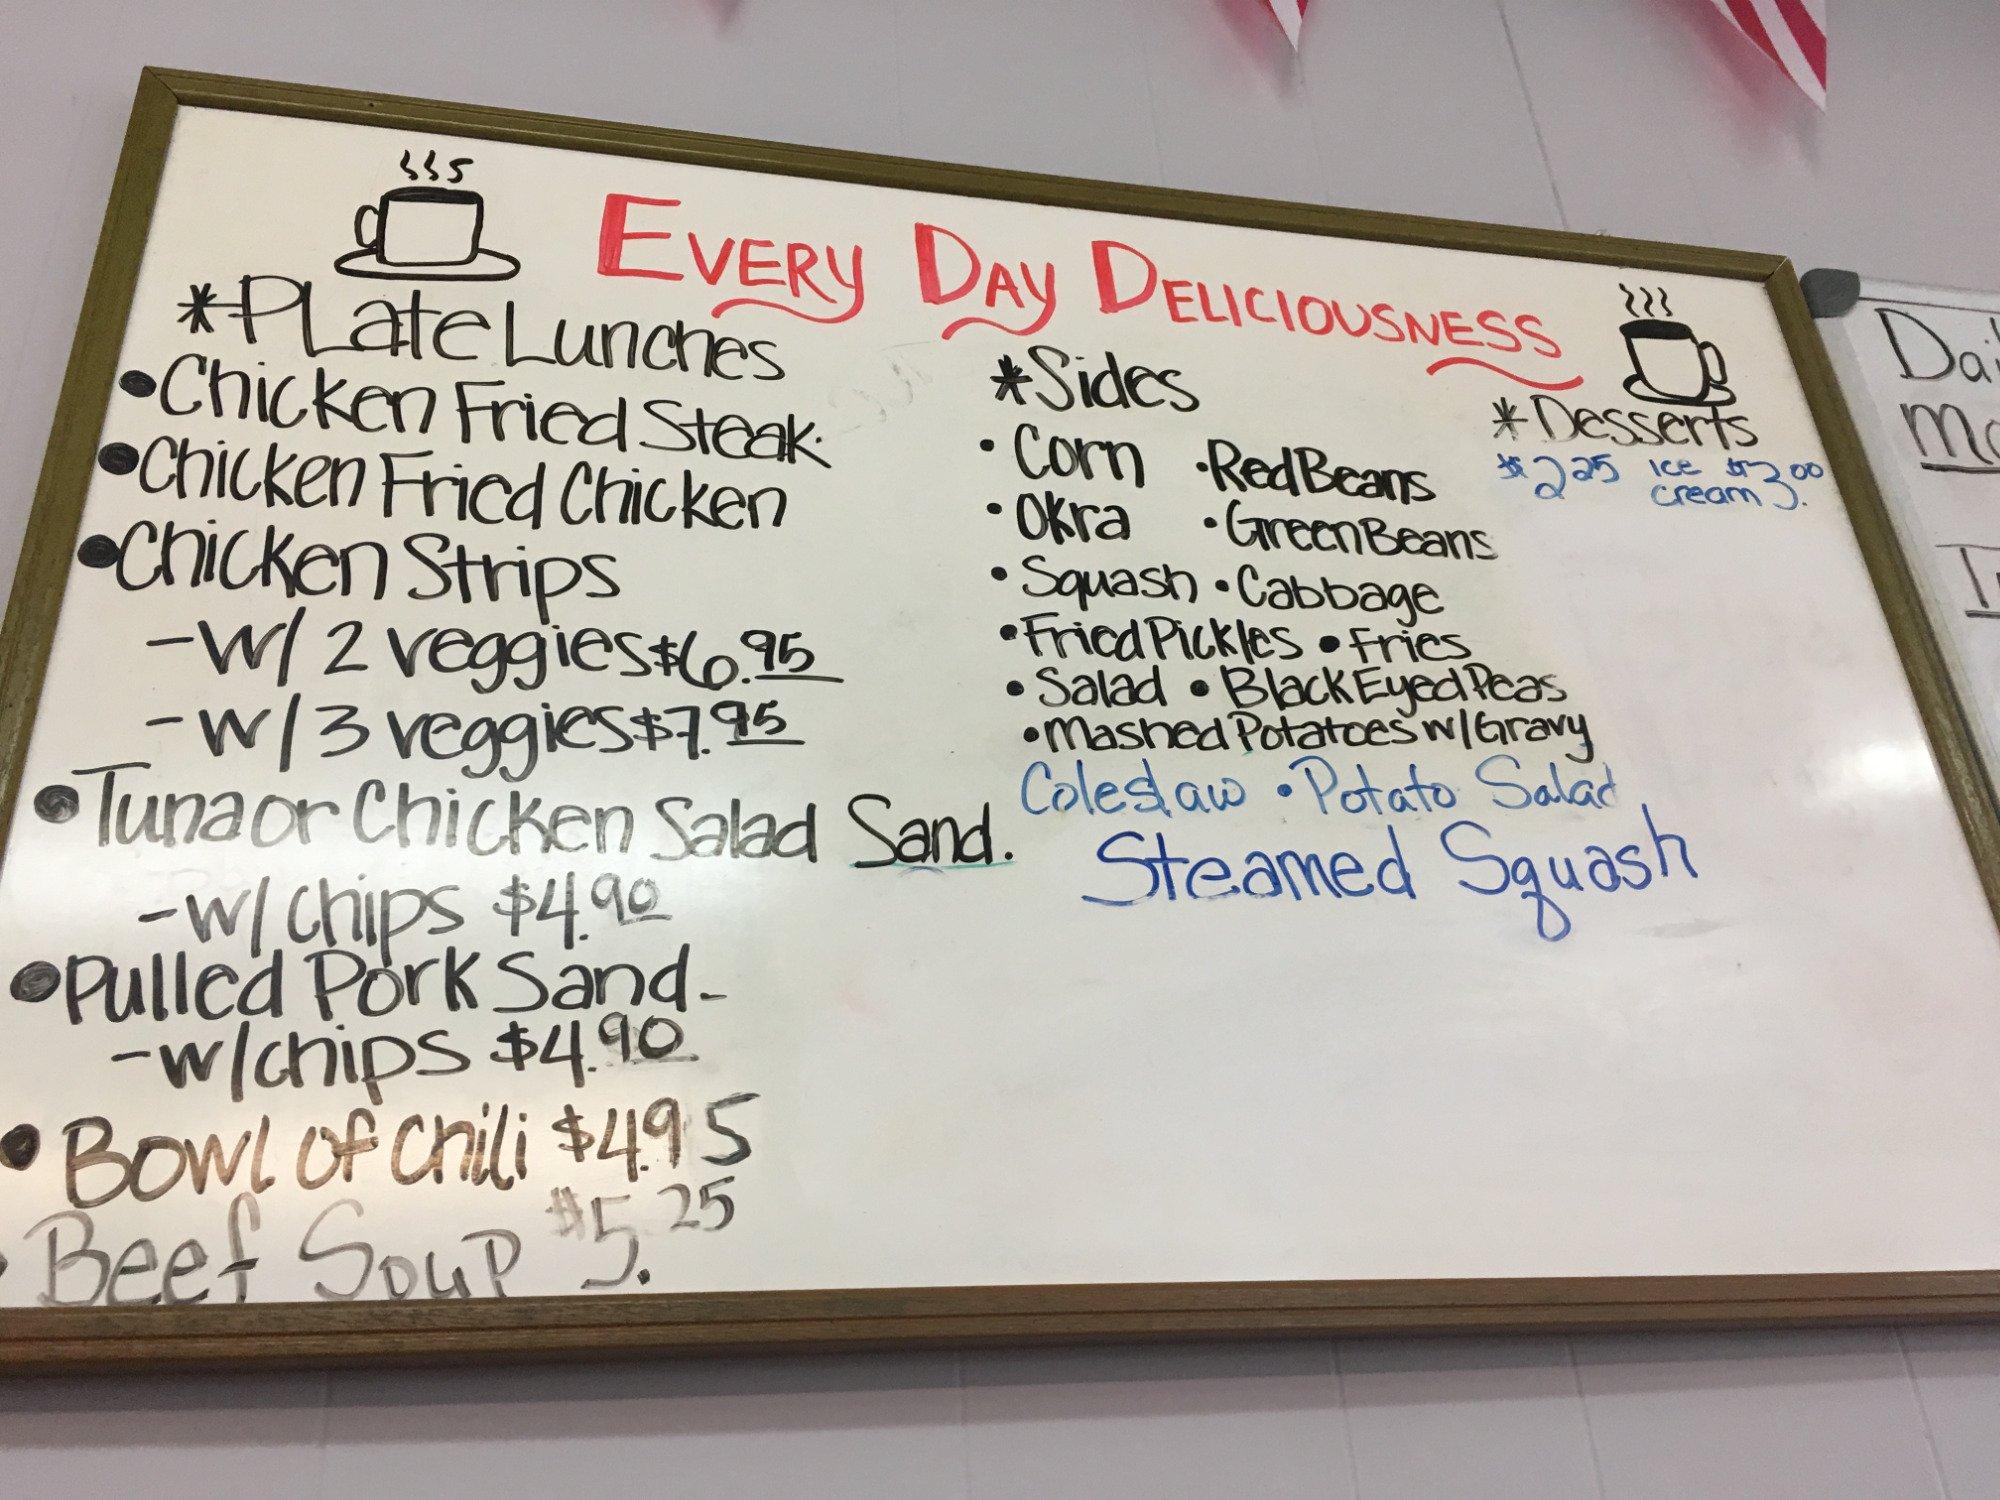 EVERY DAY DELICIOUSNESS
*PLate Lunches
•Chicken Fried Steak
•Chicken Fried Chicken
•Chicken Strips
-w/ 2 veggies $6.95
-w/ 3 veggies $7.95
•Tuna or Chicken Salad Sand.
-w/ chips $4.90
•Pulled Pork Sand-
-w/chips $4.90
•Bowl of chili $4.95
•Beef Soup $5.25
*Sides
•Corn •Red Beans
•Okra •Green Beans
•Squash •Cabbage
•Fried Pickles •Fries
•Salad •Black Eyed Peas
•Mashed Potatoes w/Gravy
Coleslaw •Potato Salad
Steamed Squash
*Desserts
$2.25 ice cream $3.00